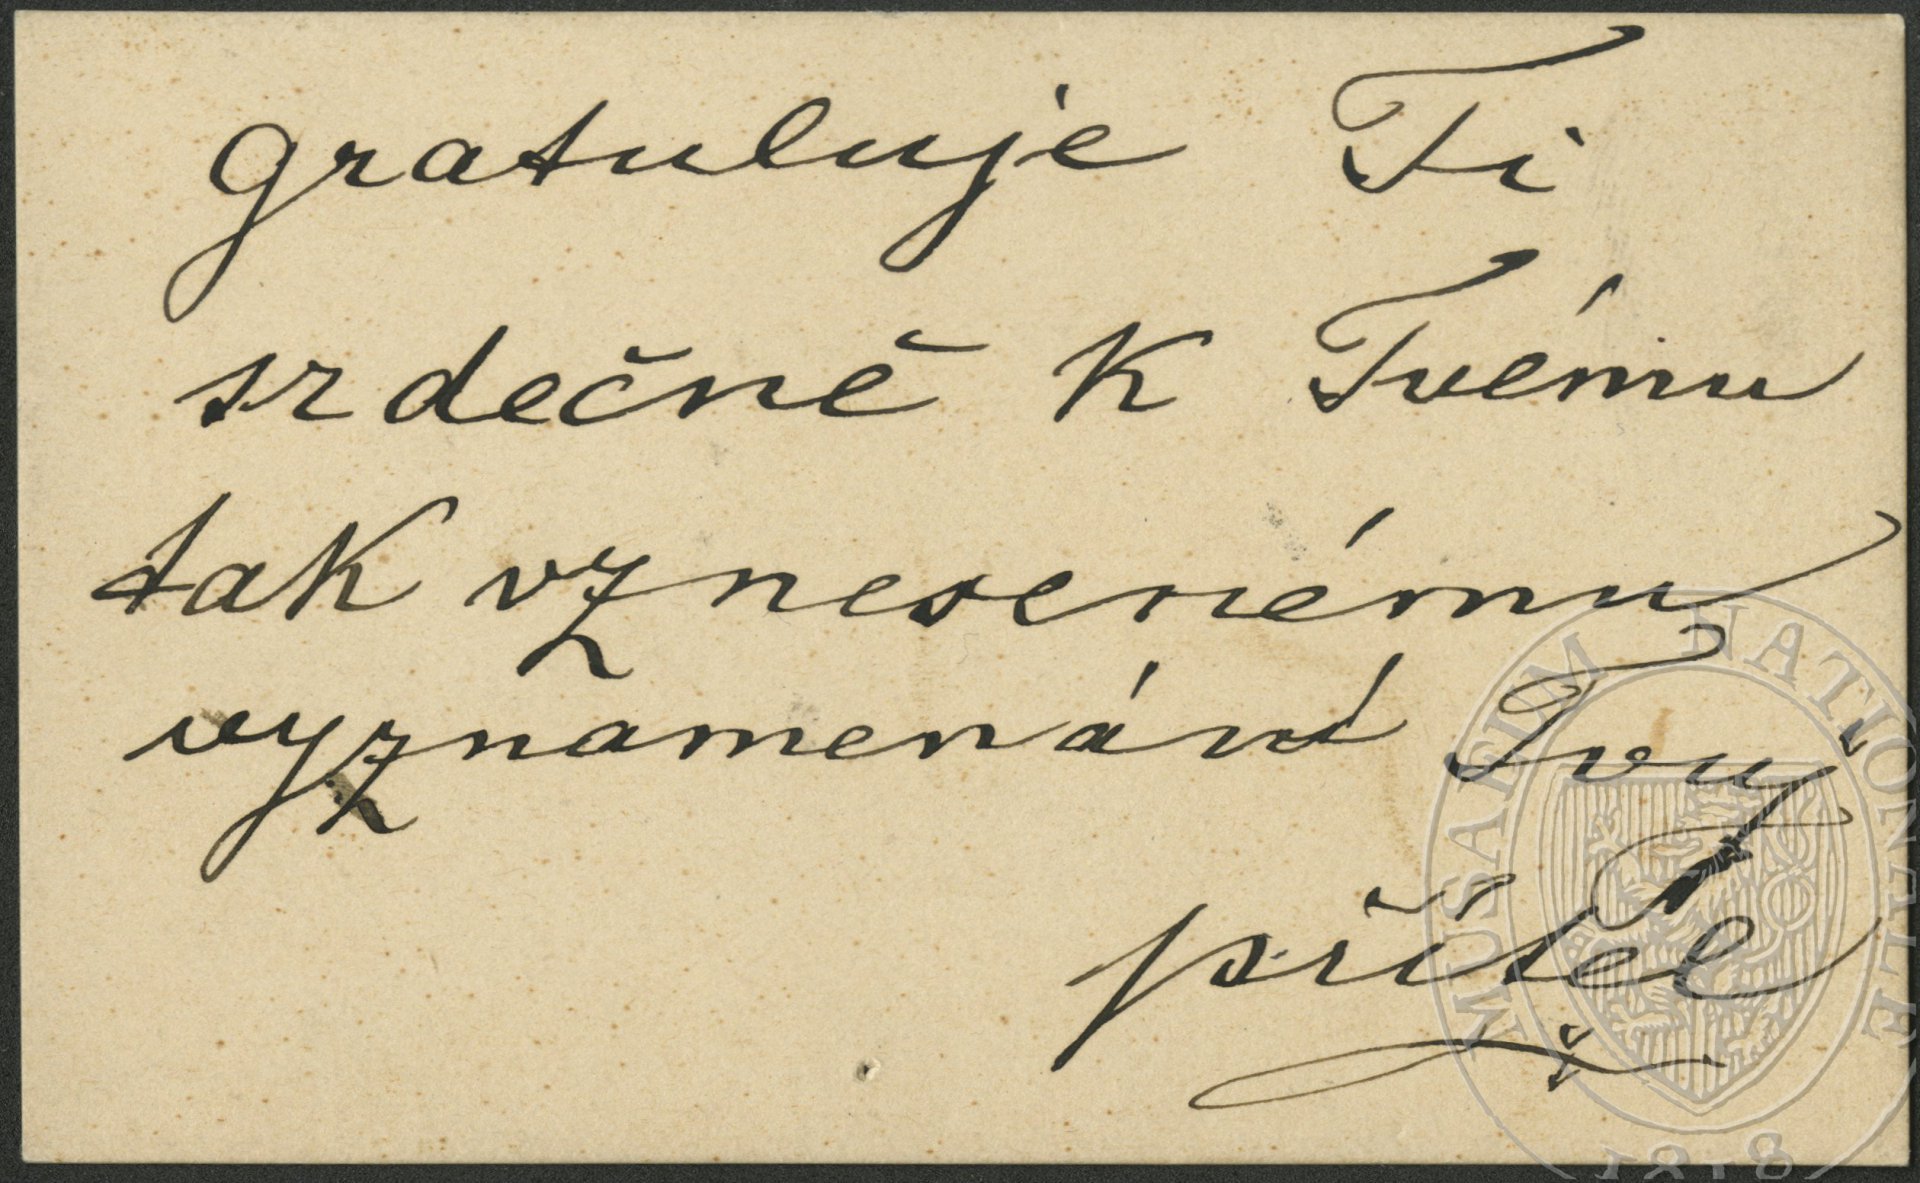 gratuluje Ti
srdečně k Tvému
tak vznesenému
vyznamenání Tvůj
přítel
MUSAEUM NATIONALE
1818